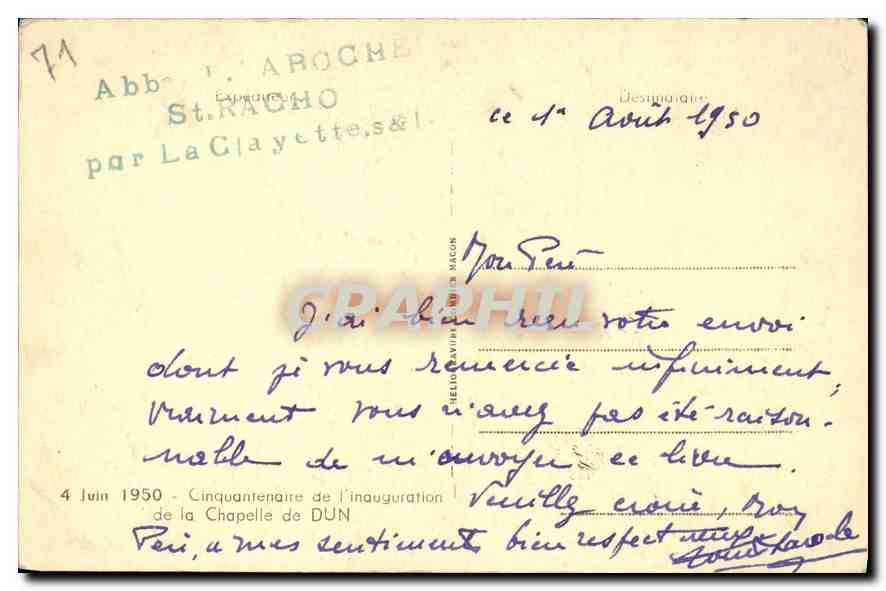 71
Abbé L. LAROCHE
Expéditeur
St. RACHO
par La Clayette. s&l.
Destinataire
ce 1er Août 1950
Mon Père
J'ai bien reçu votre envoi
dont je vous remercie infiniment,
vraiment vous n'avez pas été raison-
nable de m'envoyer ce livre.
Veuillez croire, Mon
Père, a mes sentiments bien respectueux
Laroche
4 Juin 1950 - Cinquantenaire de l'inauguration
de la Chapelle de DUN
HELIOGRAVURE COMBIER MACON
CPAPHIL